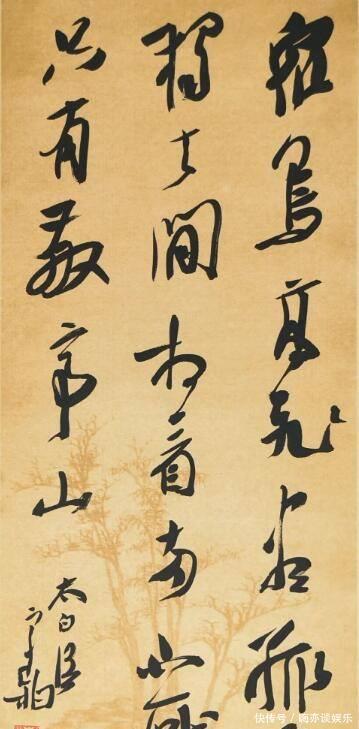 眾鳥高飛盡孤
獨去閒相看兩不厭
只有敬亭山
太白詩
快传号 / 嗨亦谈娱乐